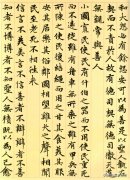 和大怨必有餘怨安可以為善是以聖人執左
契而不責於人故有德司契無德司徹天道無
親常與善人
小國寡民使有什伯之器而不用使民重死
而不遠徙雖有舟輿無所乘之雖有甲兵無所
陳之使民復結繩而用之甘其食美其服
安其居樂其俗鄰國相望雞犬之聲相聞
民至老死不相往來
信言不美美言不信善者不辯辯者不善
知者不博博者不知聖人無積既以為人己愈